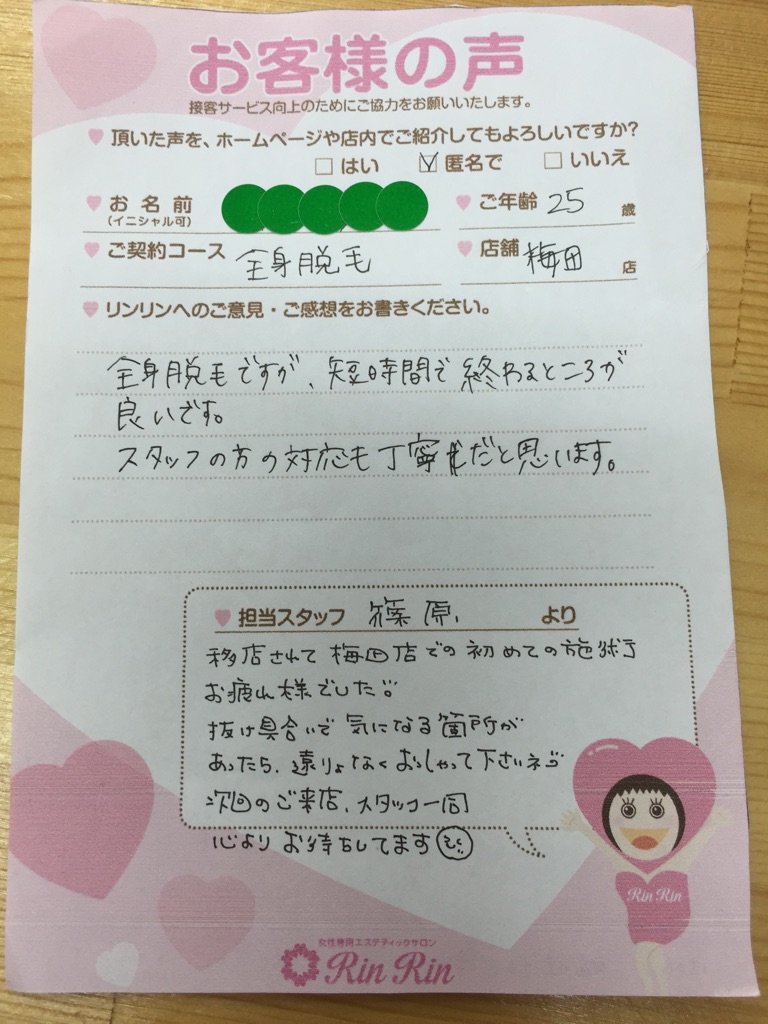 お客様の声
接客サービス向上のためにご協力をお願いいたします。
頂いた声を、ホームページや店内でご紹介してもよろしいですか?
□ はい ☑ 匿名で □ いいえ
お名前 ご年齢 25 歳
(イニシャル可)
ご契約コース 全身脱毛 店舗 梅田 店
リンリンへのご意見・ご感想をお書きください。
全身脱毛ですが、短時間で終わるところが
良いです。
スタッフの方の対応も丁寧だと思います。
担当スタッフ 篠原 より
移店されて梅田店での初めての施術
お疲れ様でした
抜け具合いで気になる箇所が
あったら、遠りょなくおっしゃって下さいネ
次回のご来店、スタッフ一同
心よりお待ちしてます
Rin Rin
女性専用エステティックサロン
Rin Rin